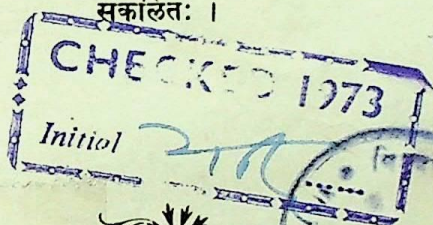 संकलितः ।
CHECKED 1973
Initial